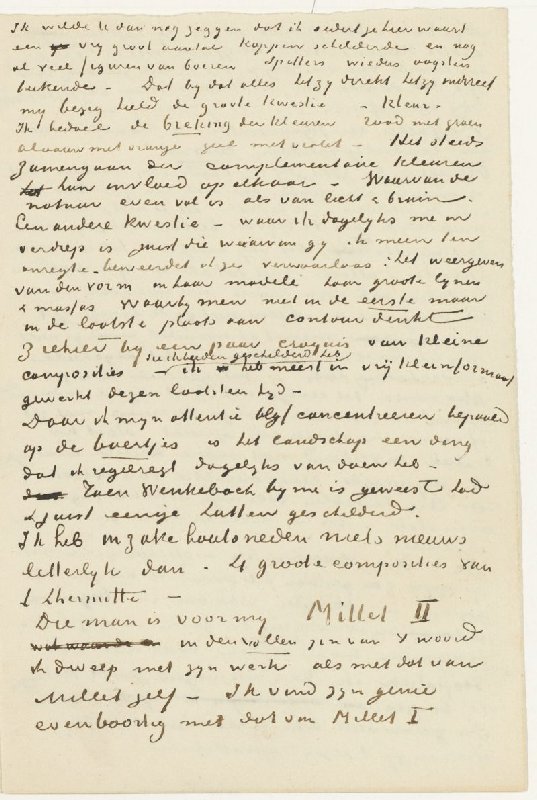 Ik wilde U dan nog zeggen dat ik sedert ge hier waart
een vrij groot aantal koppen schilderde en nog
al veel figuren van boeren spitters wieders oogsters
Dat bij dat alles hetzij direkt hetzij indirect
my bezig hield de groote kwestie – kleur.
Ik bedoel de breking der kleuren rood met groen
blaauw met oranje geel met violet – Het steeds
zamengaan der complementaire kleuren
hun invloed op elkaar – Waarvan de
natuur even vol is als van licht & bruin.
Een andere kwestie – waar ik dagelyks me in
verdiep is juist die waarvan gij ik meen ten
onregte beweerdet ik ze verwaarloos: het weergeven
van den vorm en haar modelé haar groote lynen
& massas Waarby men niet in de eerste maar
in de laatste plaats aan contour denkt
Z Hier by een paar croquis van kleine
composities – ik heb meest in vrij klein formaat
slechts geschilderd
gewerkt dezen laatsten tyd –
Daar ik mijn attentie blyf concentreeren bepaald
op de boertjes is het landschap een ding
dat ik regelregt dagelyks van doen heb –
Toen Wenkebach by me is geweest had
ik juist eenige hutten geschilderd.
Ik heb in zake houtsneden niets nieuws
letterlyk dan – 4 groote composities van
L Lhermitte –
Die man is voor my Millet II
in den vollen zin van 't woord
ik dweep met zyn werk als met dat van
Millet zelf – Ik vind zyn genie
evenboortig met dat van Millet I